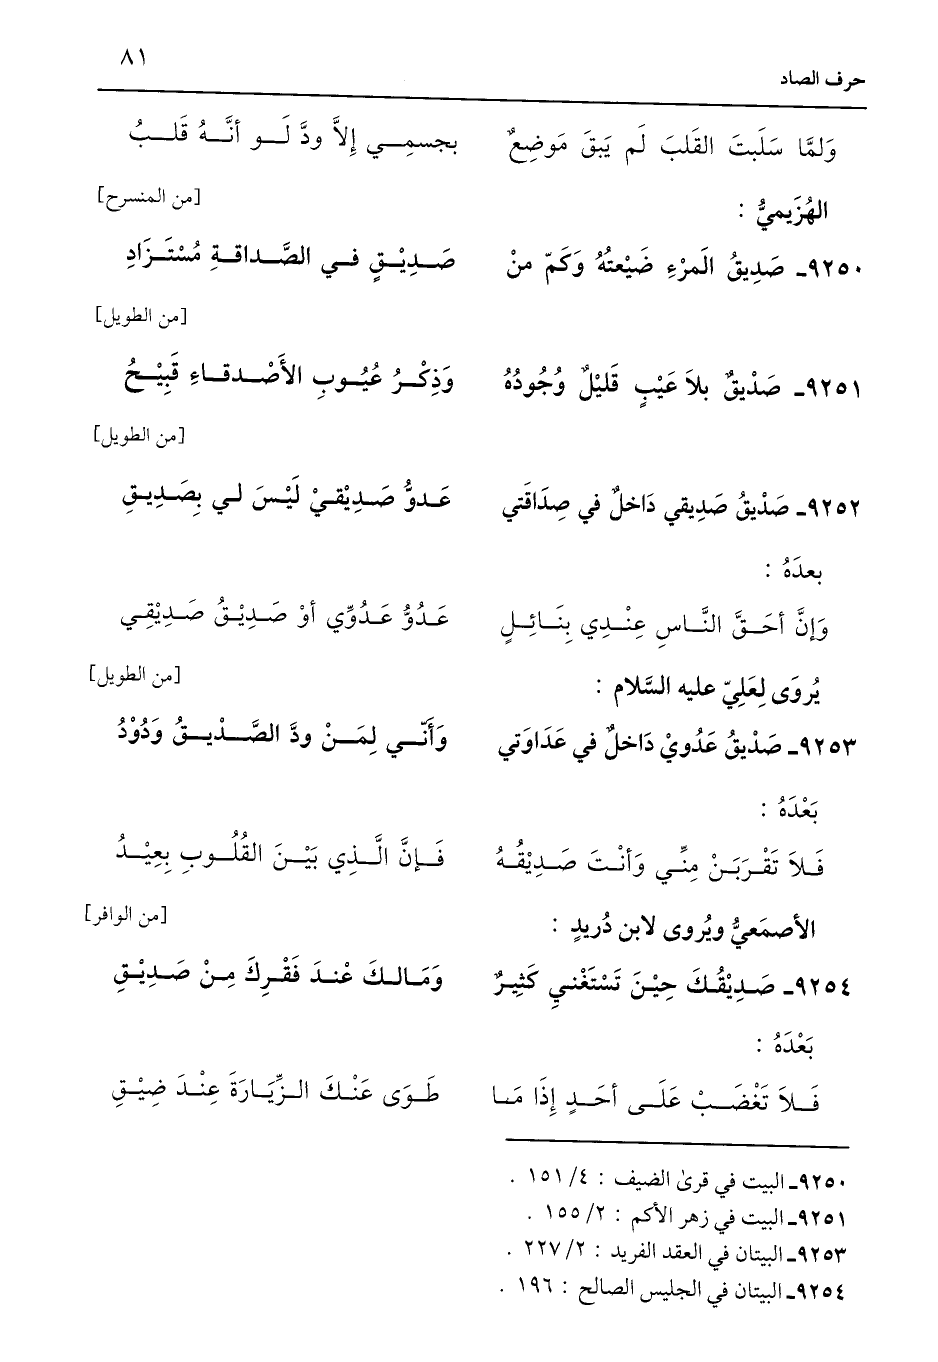 ٨١
حرف الصاد
وَلمَّا سَلَبتَ القَلبَ لَم يَبقَ مَوضِعٌ بجسمِي إلاَّ ودَّ لَو أنَّهُ قَلبُ
[من المنسرح]
الهُزَيميُّ :
٩٢٥٠- صَدِيقُ المَرْءِ ضَيْعتُهُ وَكَمّ منْ صَدِيْقٍ في الصَّداقةِ مُسْتَزَادِ
[من الطويل]
٩٢٥١- صَدْيقٌ بلاَ عَيْبٍ قَليْلٌ وُجُودُهُ وَذِكْرُ عُيُوبِ الأَصْدقاءِ قَبِيْحُ
[من الطويل]
٩٢٥٢- صَدْيقُ صَدِيقي دَاخلٌ في صِدَاقَتي عَدوُّ صَدِيْقيْ لَيْسَ لي بِصَدِيقِ
بعدَهُ :
وَإنَّ أحَقَّ النَّاسِ عِنْدِي بِنَائِلٍ عَدُوُّ عَدُوِّي أوْ صَدِيْقُ صَدِيْقِي
[من الطويل]
يُروَى لِعَلِيّ عليه السَّلام :
٩٢٥٣- صَدْيقُ عَدُويْ دَاخلٌ في عَدَاوَتي وَأَنّي لِمَنْ ودَّ الصَّدْيقُ وَدُوْدُ
بَعْدَهُ :
فَلاَ تَقْرَبَنْ مِنِّي وَأنْتَ صَدِيْقُهُ فَإنَّ الَّذِي بَيْنَ القُلُوبِ بِعِيْدُ
[من الوافر]
الأصمَعيُّ ويُروى لابن دُريدٍ :
٩٢٥٤- صَدِيْقُكَ حِيْنَ تَسْتَغْنيِ كَثيِرٌ وَمَالكَ عْندَ فَقْركَ مِنْ صَدِيْقِ
بَعْدَهُ :
فَلاَ تَغْضَبْ عَلَى أحَدٍ إذَا مَا طَوَى عَنْكَ الزِّيَارَةَ عِنْدَ ضِيْقِ
٩٢٥٠- البيت في قرى الضيف : ٤/ ١٥١ .
٩٢٥١- البيت في زهر الأكم : ٢/ ١٥٥ .
٩٢٥٣- البيتان في العقد الفريد : ٢/ ٢٢٧ .
٩٢٥٤- البيتان في الجليس الصالح : ١٩٦ .